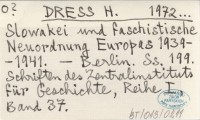 O2 DRESS H. 1972...
Slowakei und faschistische
Neuordnung Europas 1939-
-1941. — Berlin. Ss. 199.
Schriften des Zentralinstituts
für Geschichte, Reihe I,
Band 37.